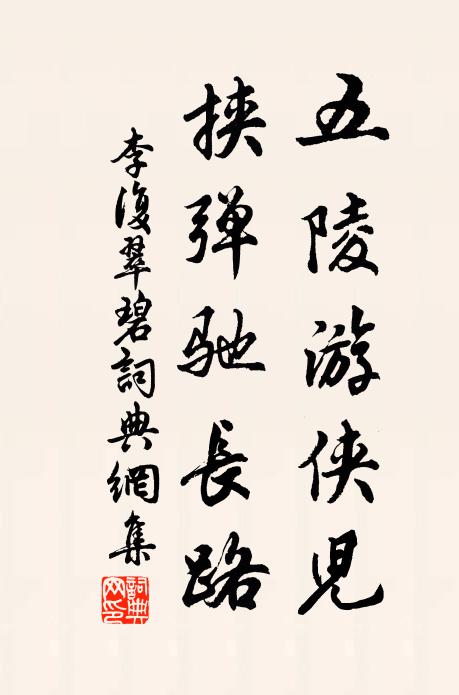 五陵游侠児
挟弹驰長路
李復翠碧詞典網集
詞典網印